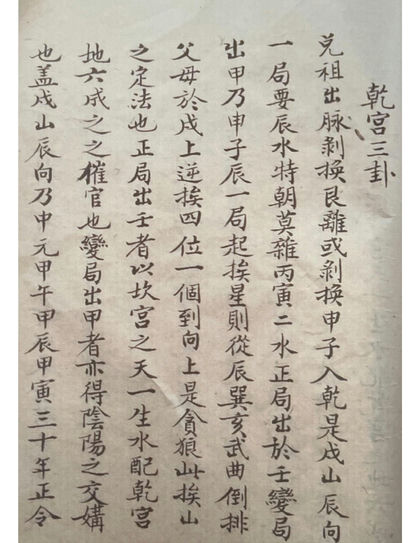 乾宮三卦
兑祖出脉剥換艮離或剥換申子入乾是戌山辰向
一局要辰水特朝莫雜丙寅二水正局出於壬變局
出甲乃申子辰一局起挨星則從辰巽亥武曲倒排
父母於戌上逆挨四位一個到向上是貪狼此挨山
之定法也正局出壬者以坎宮之天一生水配乾宮
地六成之之催官也變局出甲者亦得陰陽之交媾
也盖戌山辰向乃中元甲午甲辰甲寅三十年正令